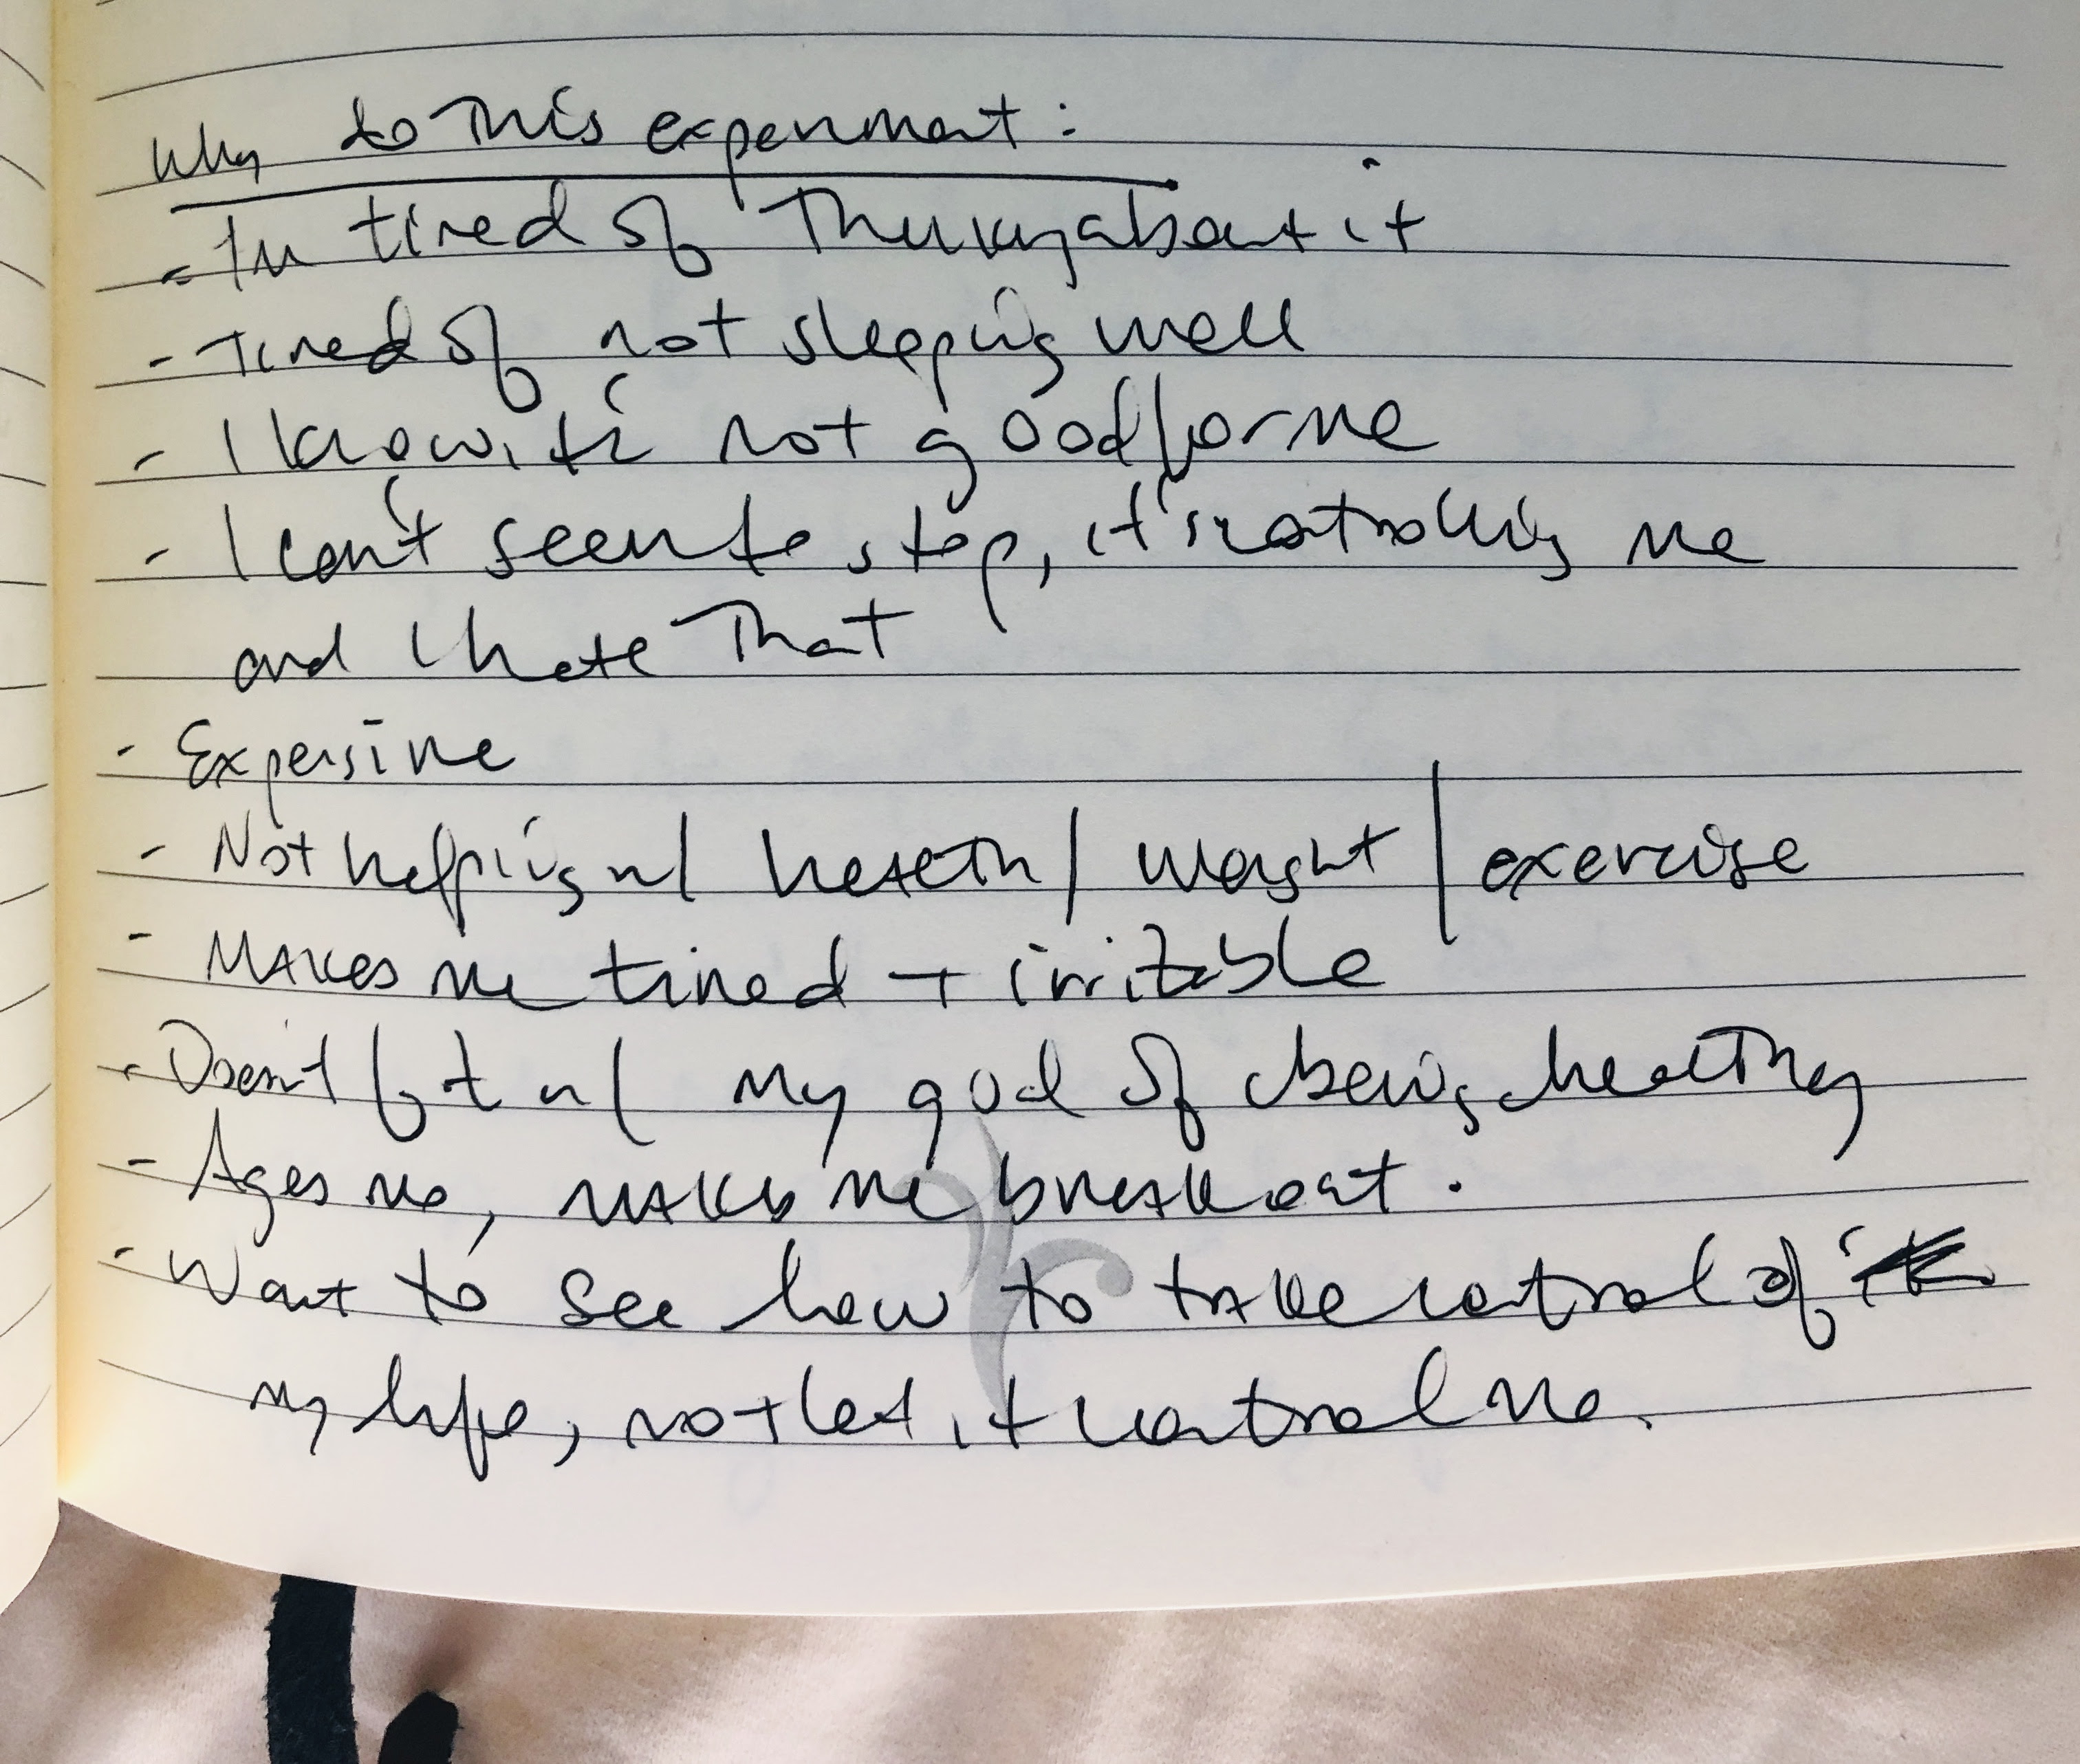 Why do this experiment:
- I'm tired of thinking about it
- Tired of not sleeping well
- I know it's not good for me
- I can't seem to stop, it's controlling me
and I hate that
- Expensive
- Not helping w/ health / weight / exercise
- Makes me tired + irritable
- Doesn't fit w/ my goal of being healthy
- Ages me, makes me breakout.
- Want to see how to take control of it
my life, not let it control me.